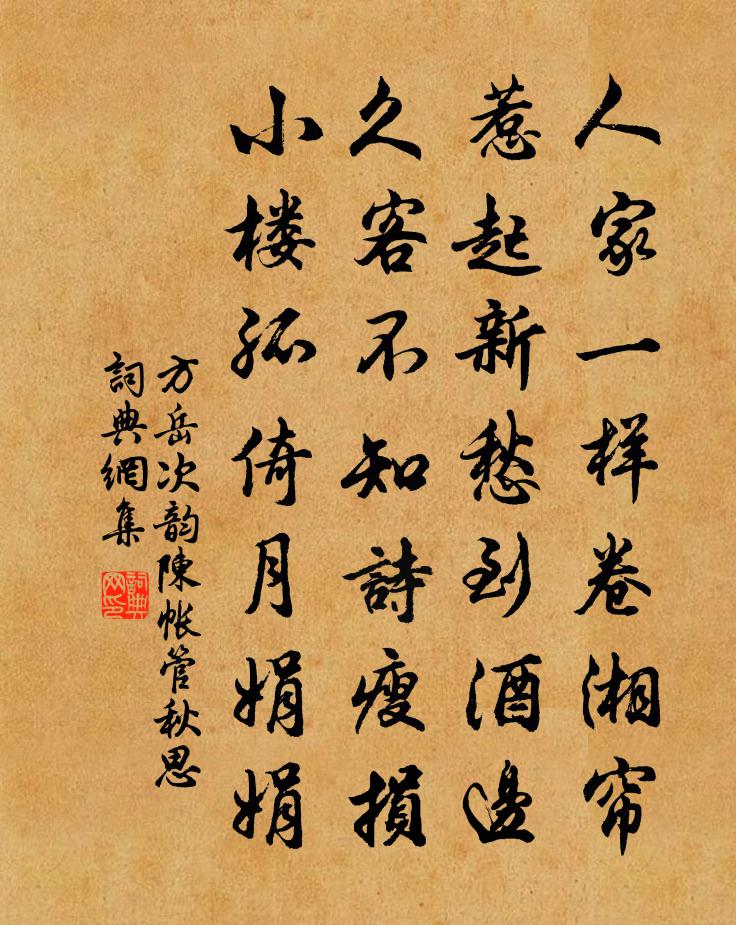 人家一样卷湘帘
惹起新愁到酒邊
久客不知詩瘦損
小楼孤倚月娟娟
方岳次韵陳帐管秋思
詞典網集
詞典網印